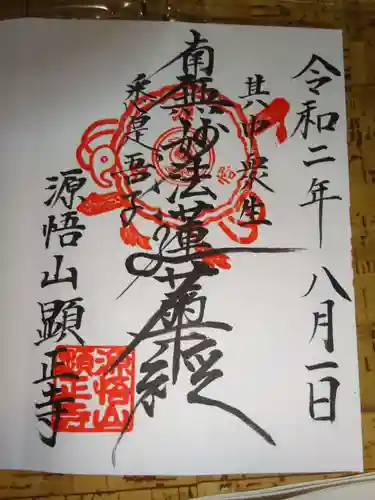 令和二年 八月一日
其中衆生
南無妙法蓮華経
悉是吾子
源悟山 顕正寺
源悟山
顕正寺